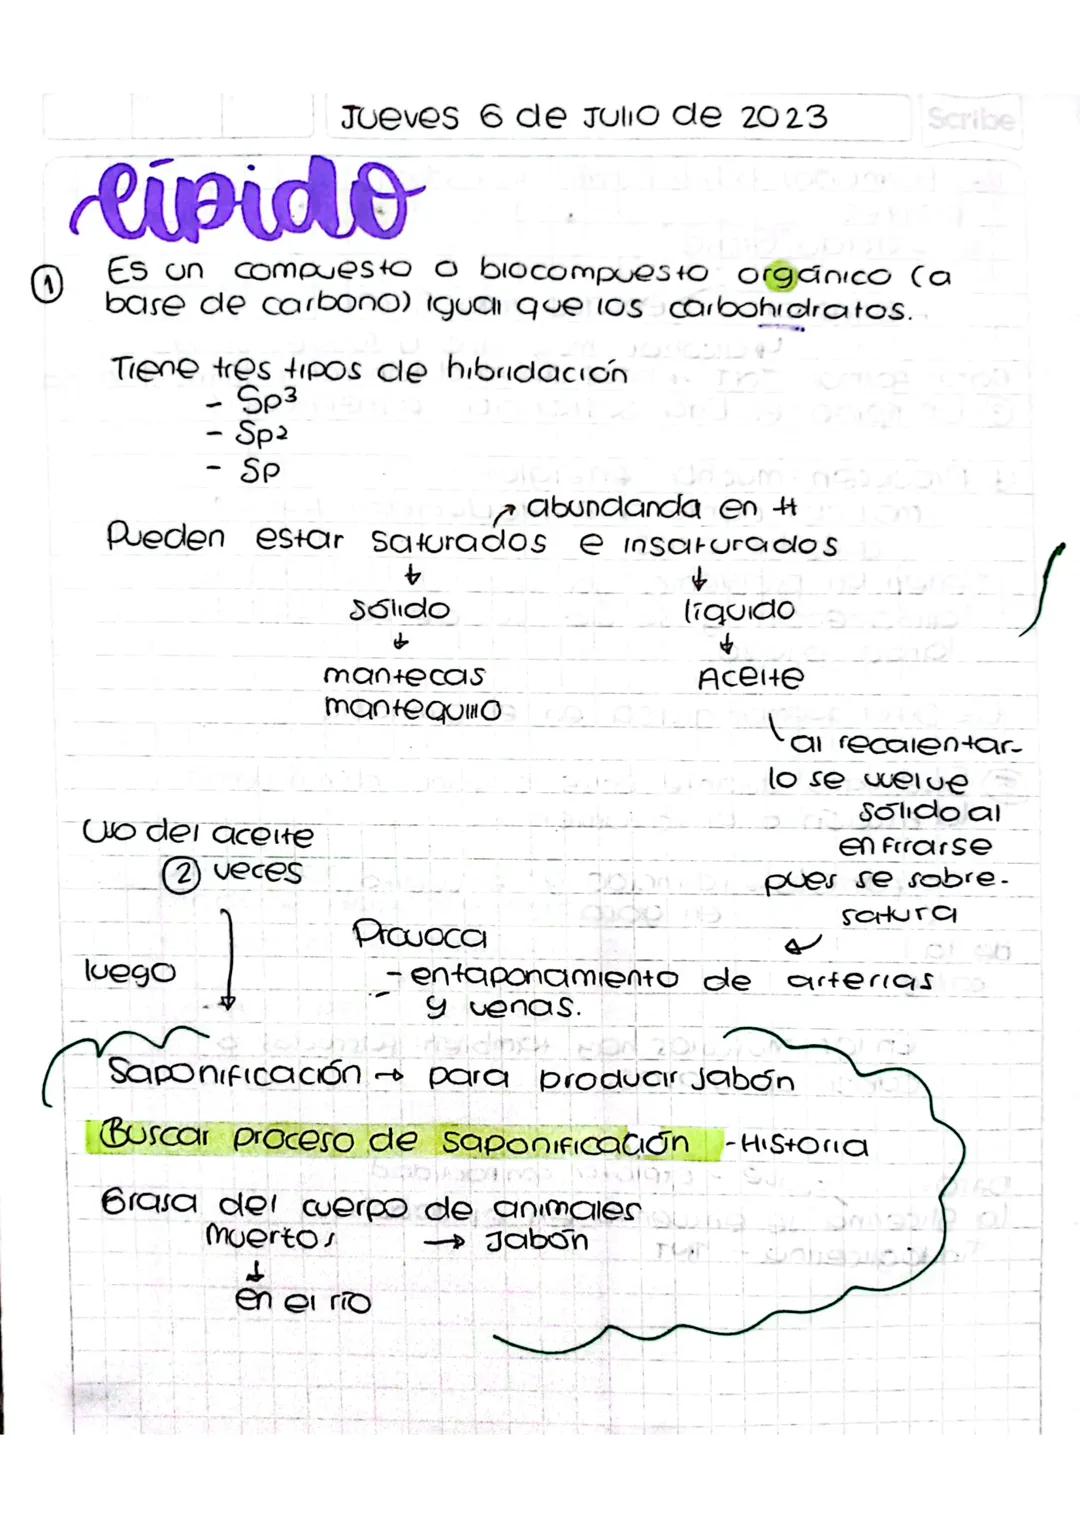 Jueves 6 de Julio de 2023
Scribe
lípido
① Es un compuesto o biocompuesto orgánico (a
base de carbono) igual que los carbohidratos.
Tiene tres tipos de hibridación
- Sp3
- Sp2
- Sp
→ abundanda en H
Pueden estar saturados e insaturados
↓ ↓
sólido líquido
↓ ↓
mantecas Aceite
mantequillo
al recalentar-
lo se vuelve
sólido al
enfriarse
pues se sobre-
satura
Uso del aceite
② veces
Provoca
luego
- entaponamiento de arterias
y venas.
Saponificación → para producir Jabón
Buscar proceso de saponificación - Historia
Grasa del cuerpo de animales
muertos → Jabón
↓
en el río